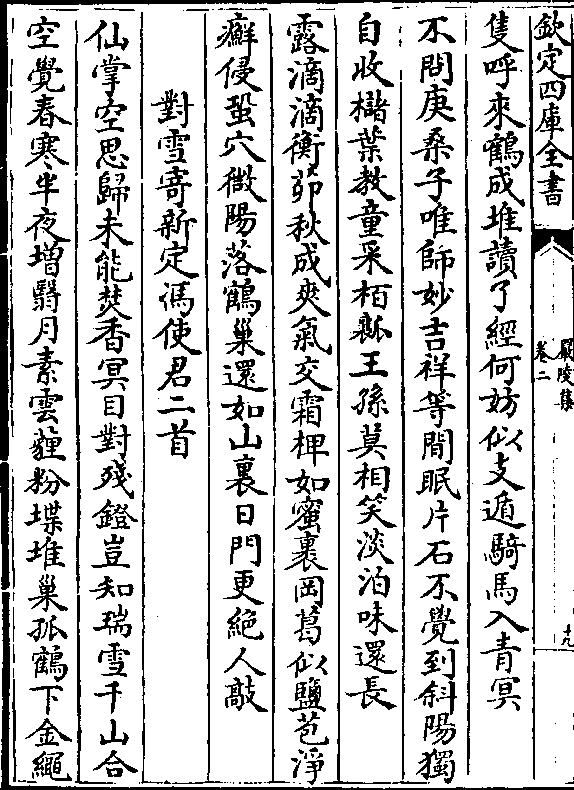 欽定四庫全書
嚴陵集
卷二
十九
隻呼來鶴成堆讀了經何妨似支遁騎馬入青冥
不問庚桑子唯師妙吉祥等閒眠片石不覺到斜陽獨
自收櫧葉教童采栢瓤王孫莫相笑淡泊味還長
露滴滴衡茆秋成爽氣交霜椑如蜜裹岡葛似鹽苞淨
癬侵蛩穴微陽落鶴巢還如山裏日門更絶人敲
對雪寄新定馮使君二首
仙掌空思歸未能焚香冥目對殘鐙豈知瑞雪千山合
空覺春寒半夜增翳月素雲薶粉堞堆巢孤鶴下金繩